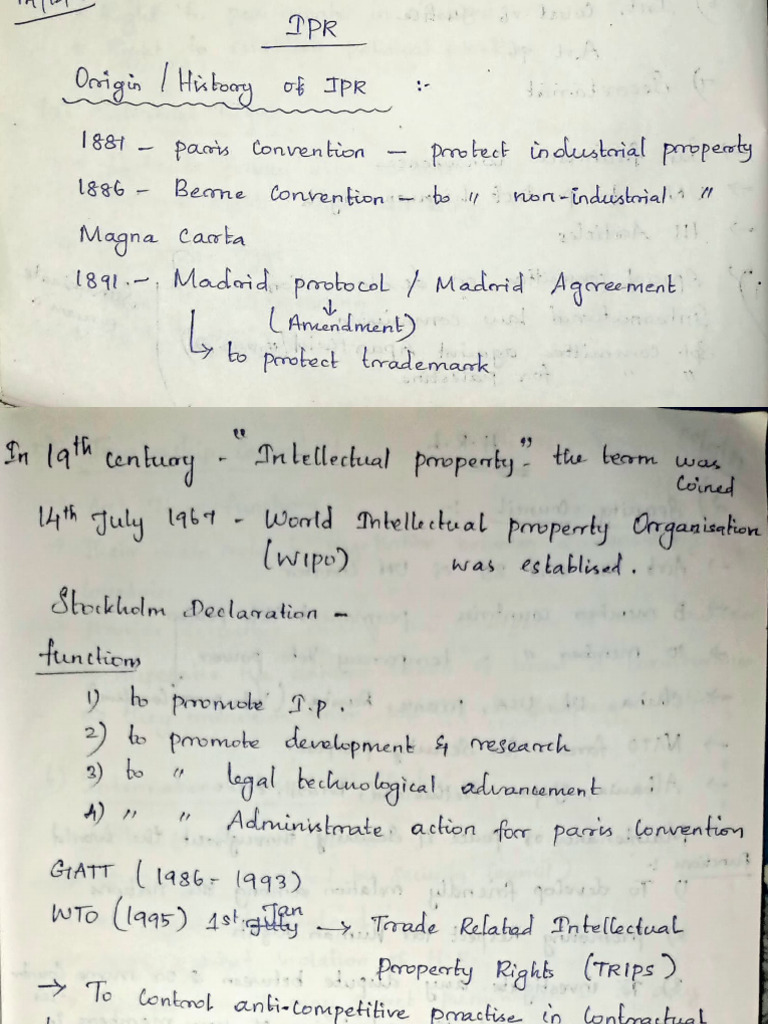 IPR
Origin / History of IPR :-
1881 - paris convention - protect industrial property
1886 - Berne convention - to " non-industrial "
Magna Carta
1891 - Madrid protocol / Madrid Agreement
(Amendment)
to protect trademark
In 19th century - "Intellectual property" - the term was
coined
14th July 1967 - World Intellectual property Organisation
(WIPO) was establised.
Stockholm Declaration -
functions
1) to promote I.p.
2) to promote development & research
3) to " legal technological advancement
4) " " Administrate action for paris convention
GATT (1986 - 1993)
WTO (1995) 1st Jan → Trade Related Intellectual
Property Rights (TRIPS)
→ To control anti-competitive practise in contractual